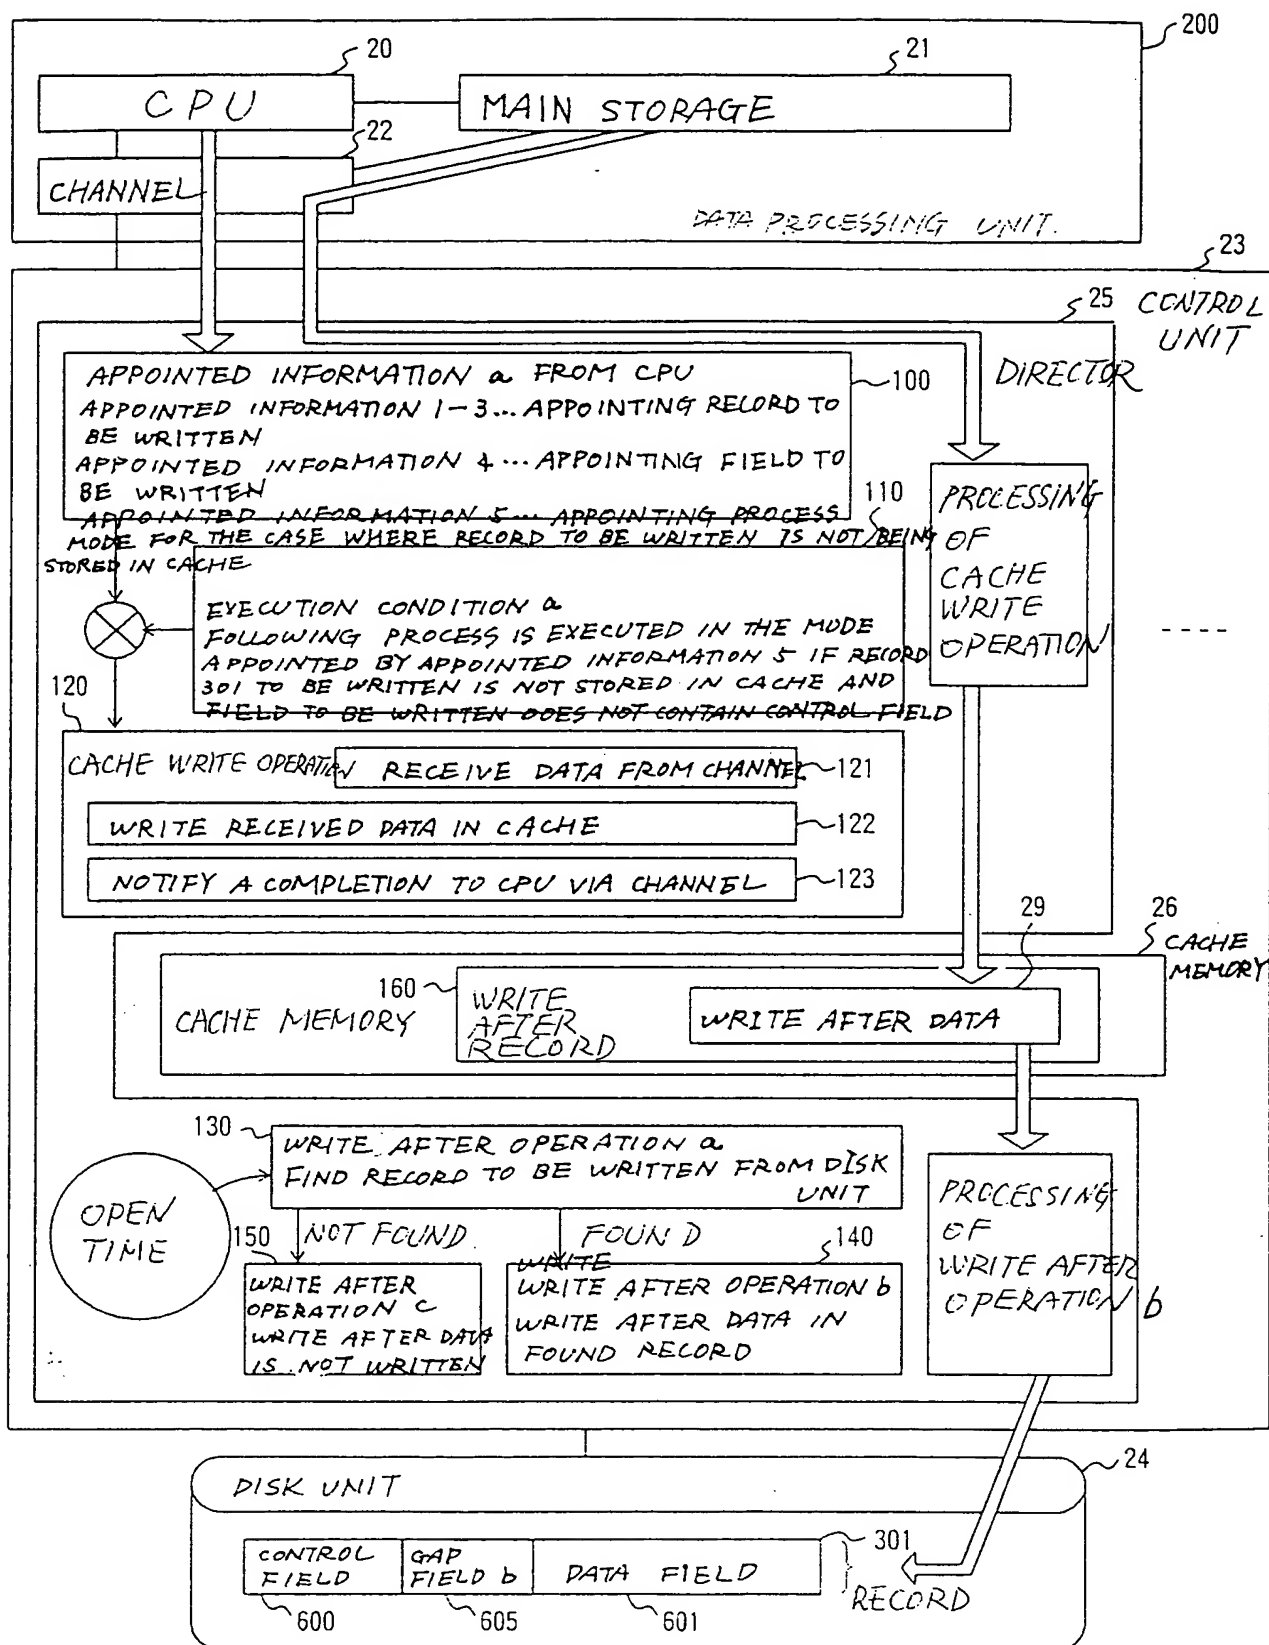 200
20
21
CPU
MAIN STORAGE
22
CHANNEL
DATA PROCESSING UNIT.
23
25
CONTROL
UNIT
DIRECTOR
APPOINTED INFORMATION a FROM CPU
100
APPOINTED INFORMATION 1-3... APPOINTING RECORD TO
BE WRITTEN
APPOINTED INFORMATION 4 ... APPOINTING FIELD TO
BE WRITTEN
APPOINTED INFORMATION 5... APPOINTING PROCESS
MODE FOR THE CASE WHERE RECORD TO BE WRITTEN IS NOT BEING
STORED IN CACHE
110
PROCESSING
OF
CACHE
WRITE
OPERATION
EXECUTION CONDITION a
FOLLOWING PROCESS IS EXECUTED IN THE MODE
APPOINTED BY APPOINTED INFORMATION 5 IF RECORD
301 TO BE WRITTEN IS NOT STORED IN CACHE AND
FIELD TO BE WRITTEN DOES NOT CONTAIN CONTROL FIELD
120
CACHE WRITE OPERATION
RECEIVE DATA FROM CHANNEL
121
WRITE RECEIVED DATA IN CACHE
122
NOTIFY A COMPLETION TO CPU VIA CHANNEL
123
29
26
CACHE
MEMORY
160
CACHE MEMORY
WRITE
AFTER
RECORD
WRITE AFTER DATA
130
WRITE AFTER OPERATION a
FIND RECORD TO BE WRITTEN FROM DISK
UNIT
OPEN
TIME
150
NOT FOUND
FOUND
140
WRITE
WRITE AFTER
OPERATION C
WRITE AFTER DATA
IS NOT WRITTEN
WRITE AFTER OPERATION b
WRITE AFTER DATA IN
FOUND RECORD
PROCESSING
OF
WRITE AFTER
OPERATION b
24
DISK UNIT
301
CONTROL
FIELD
GAP
FIELD b
DATA FIELD
RECORD
600
605
601